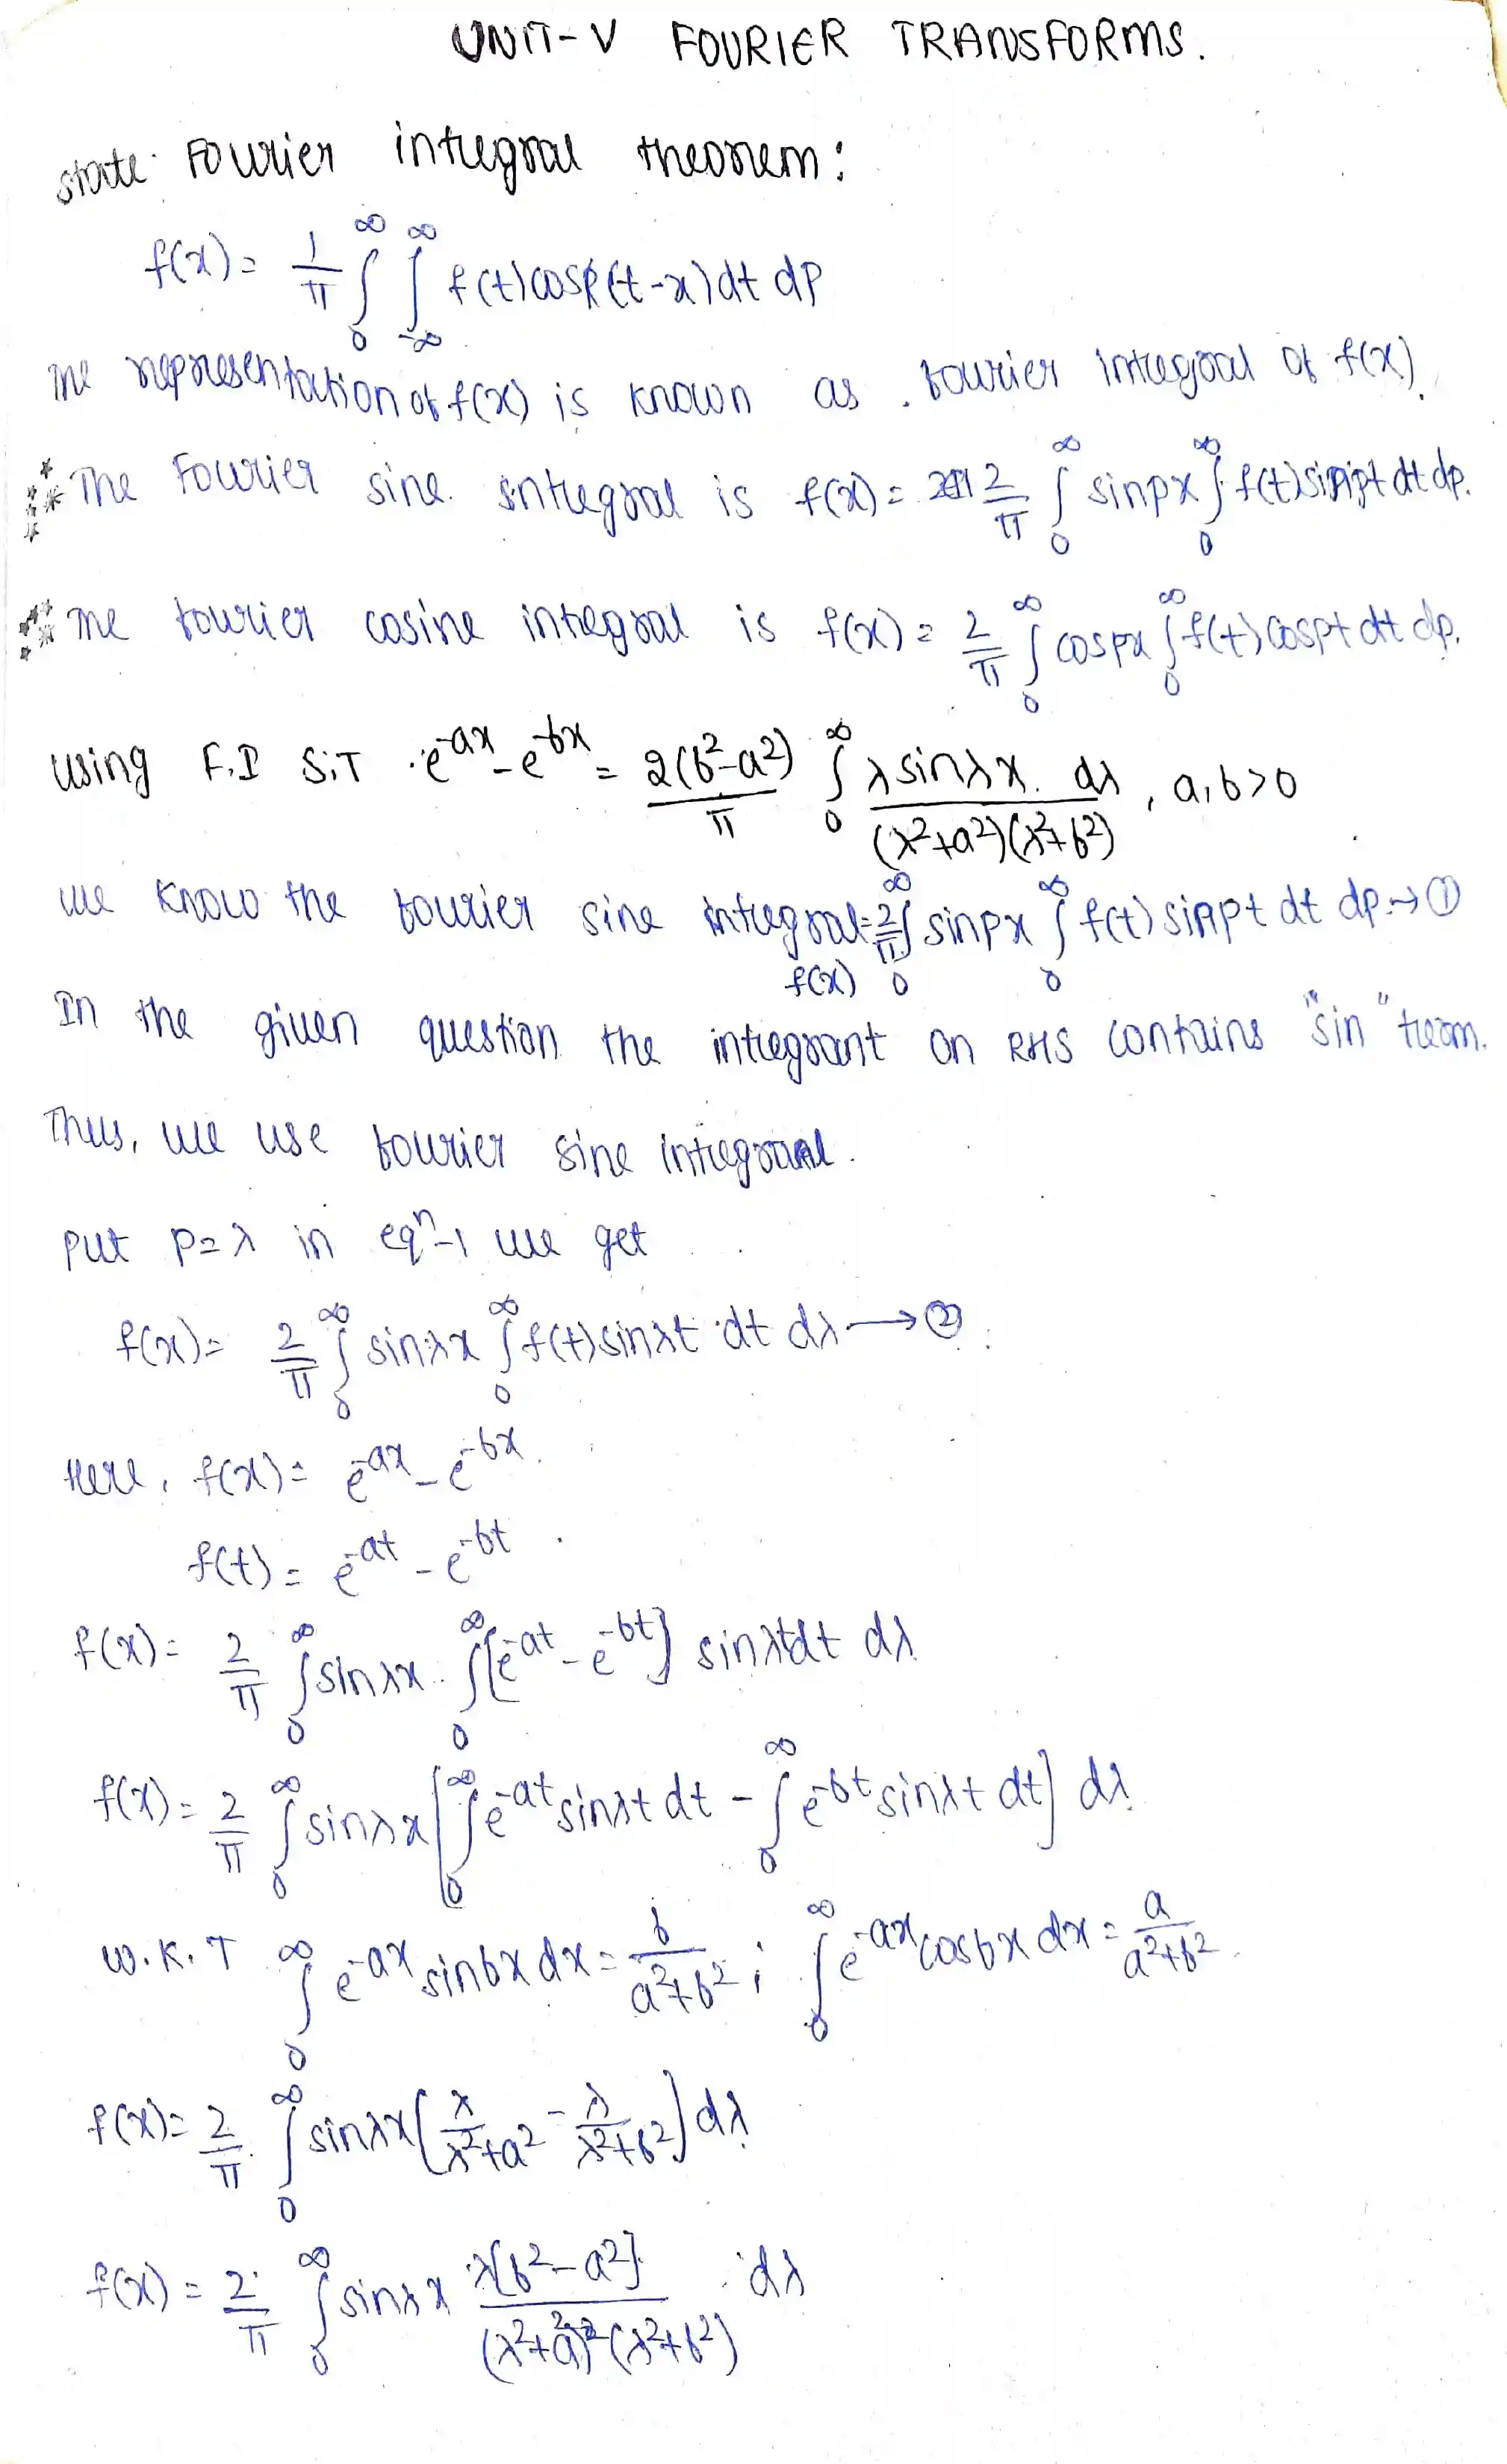 UNIT-V FOURIER TRANSFORMS.
state Fourier integral theorem:
f(x) = 1/π ∫₀^∞ ∫₋∞^∞ f(t) cosp(t-x) dt dp
The representation of f(x) is known as fourier integral of f(x).
The Fourier sine integral is f(x) = 2/π ∫₀^∞ sinpx ∫₀^∞ f(t) sinpt dt dp.
The fourier cosine integral is f(x) = 2/π ∫₀^∞ cospx ∫₀^∞ f(t) cospt dt dp.
using F.I S.T e^-ax - e^-bx = 2(b²-a²)/π ∫₀^∞ λ sinλx dλ / (λ²+a²)(λ²+b²), a,b>0
we know the fourier sine integral f(x) = 2/π ∫₀^∞ sinpx ∫₀^∞ f(t) sinpt dt dp → ①
In the given question the integrant on RHS contains "sin" team.
Thus, we use fourier sine integral.
put p=λ in eqⁿ-1 we get
f(x) = 2/π ∫₀^∞ sinλx ∫₀^∞ f(t) sinλt dt dλ → ②
Here, f(x) = e^-ax - e^-bx.
f(t) = e^-at - e^-bt
f(x) = 2/π ∫₀^∞ sinλx ∫₀^∞ [e^-at - e^-bt] sinλt dt dλ
f(x) = 2/π ∫₀^∞ sinλx [∫₀^∞ e^-at sinλt dt - ∫₀^∞ e^-bt sinλt dt] dλ
W.K.T ∫₀^∞ e^-ax sinbx dx = b/a²+b² ; ∫₀^∞ e^-ax cosbx dx = a/a²+b²
f(x) = 2/π ∫₀^∞ sinλx [λ/λ²+a² - λ/λ²+b²] dλ
f(x) = 2/π ∫₀^∞ sinλx λ[b²-a²] / (λ²+a²)(λ²+b²) dλ